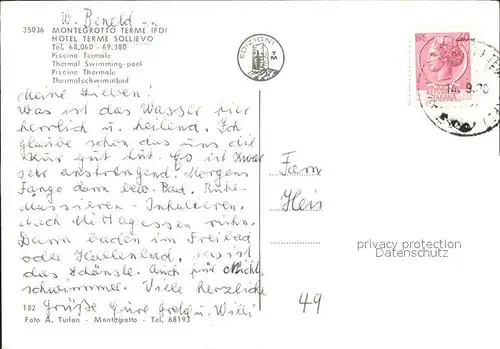 W. Beneld
35036 MONTEGROTTO TERME (PD)
HOTEL TERME SOLLIEVO
Tel. 68.060 - 69.380
Piscina Termale
Thermal Swimming-pool
Piscine Thermale
Thermalschwimmbad
EDIZIONI
T M
LIRE 40
ITALIANA
14. 9. 70
Meine Lieben!
Was ist das Wasser hier
herrlich u. heilend. Ich
glaube schon das uns die
Kur gut tut. Es ist zwar
sehr anstrengend. Morgens
Fango dann bzw. Bad. Ruhe-
Massieren - Inhalieren.
Nach Mittagessen ruhn.
Dann baden im Freibad
oder Hallenbad,
das Schönste. Auch für Nicht
schwimmer. Viele herzliche
Grüße Eure u. Willi
Fam
Heis
49
privacy protection
Datenschutz
182
Foto A. Turlon - Montegrotto - Tel. 68193